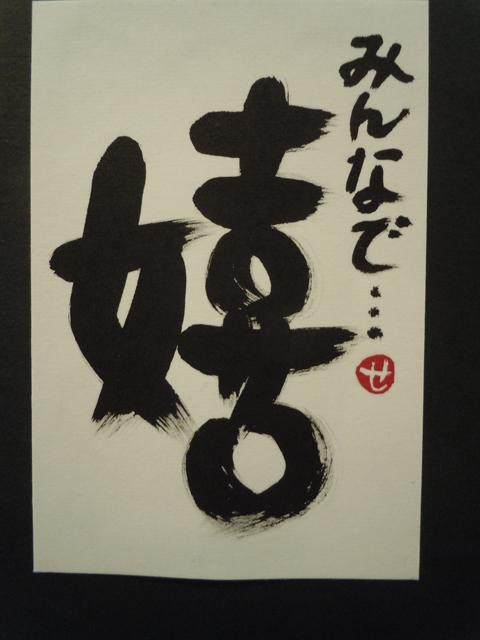 みんなで…
嬉
せ